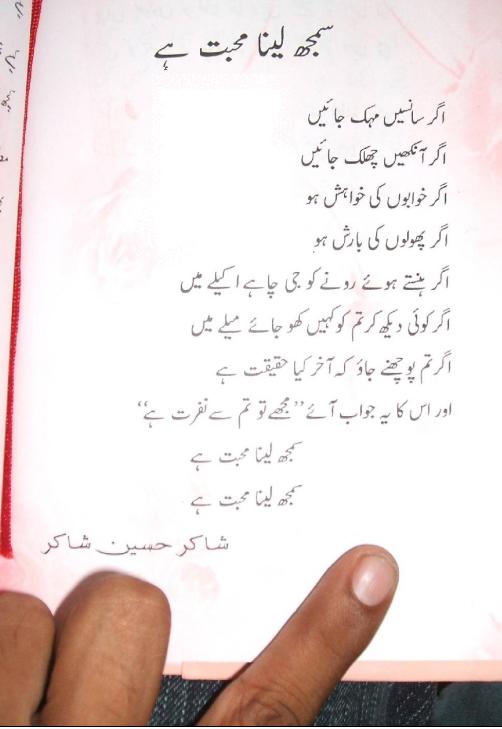 سمجھ لینا محبت ہے
اگر سانسیں مہک جائیں
اگر آنکھیں چھلک جائیں
اگر خوابوں کی خواہش ہو
اگر پھولوں کی بارش ہو
اگر ہنستے ہوئے رونے کو جی چاہے اکیلے میں
اگر کوئی دیکھ کر تم کو کہیں کھو جائے میلے میں
اگر تم پوچھنے جاؤ کہ آخر کیا حقیقت ہے
اور اس کا یہ جواب آئے ”مجھے تو تم سے نفرت ہے“
سمجھ لینا محبت ہے
سمجھ لینا محبت ہے
شاکر حسین شاکر